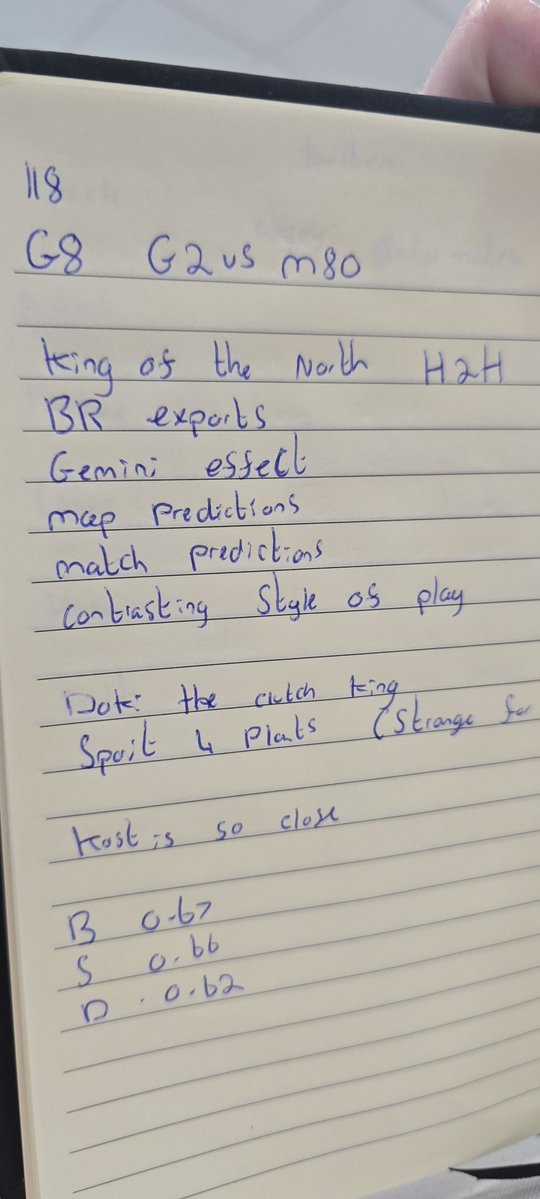 118
G8 G2 vs m80
King of the North H2H
BR exports
Gemini effect
map predictions
match predictions
contrasting Style of play
Doki the clutch king
Spoit 4 Plants (Strange for
Kost is so close
B 0.67
S 0.66
D . 0.62